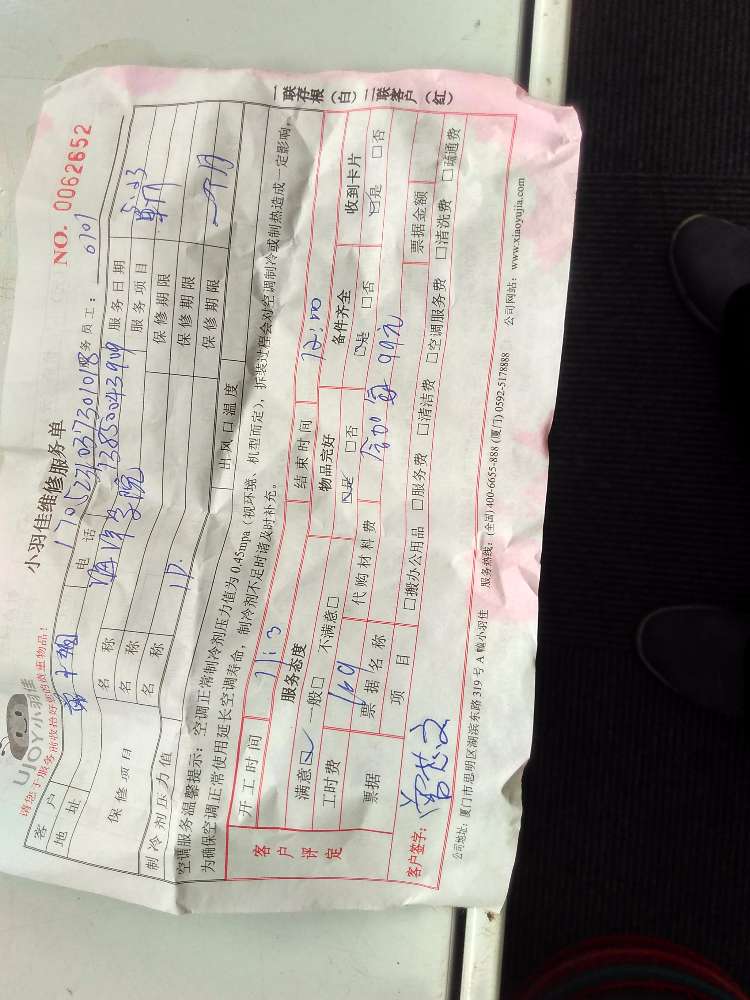 UJOY小羽佳
小羽佳维修服务单
NO. 0062652
请您于服务前收拾好您的贵重物品!
170527103730108 务员工: 0701
客户 电话 13850043909 服务日期
地址 学院 服务项目
保修项目 名称 保修期限
名称 保修期限
名称 保修期限 一个月
制冷剂压力值 1P. 出风口温度
空调服务温馨提示: 空调正常制冷剂压力值为0.45mpa (视环境、机型而定), 拆装过程会对空调制冷或制热造成一定影响,
为确保空调正常使用延长空调寿命, 制冷剂不足时请及时补充。
客户评定
开工时间 11:3 结束时间 12:00
服务态度 物品完好 备件齐全 收到卡片
满意☑ 一般□ 不满意□ ☑是 □否 ☑是 □否 ☑是 □否
工时费 169 代购材料费 99元
票据 票据名称 票据金额
项目 □搬办公用品 □服务费 □清洁费 □空调服务费 □清洗费 □疏通费
客户签字:
公司地址: 厦门市思明区湖滨东路319号A幢小羽佳 服务热线: (全国) 400-6655-888 (厦门) 0592-5178888 公司网站: www.xiaoyujia.com
一联存根 (白) 二联客户 (红)